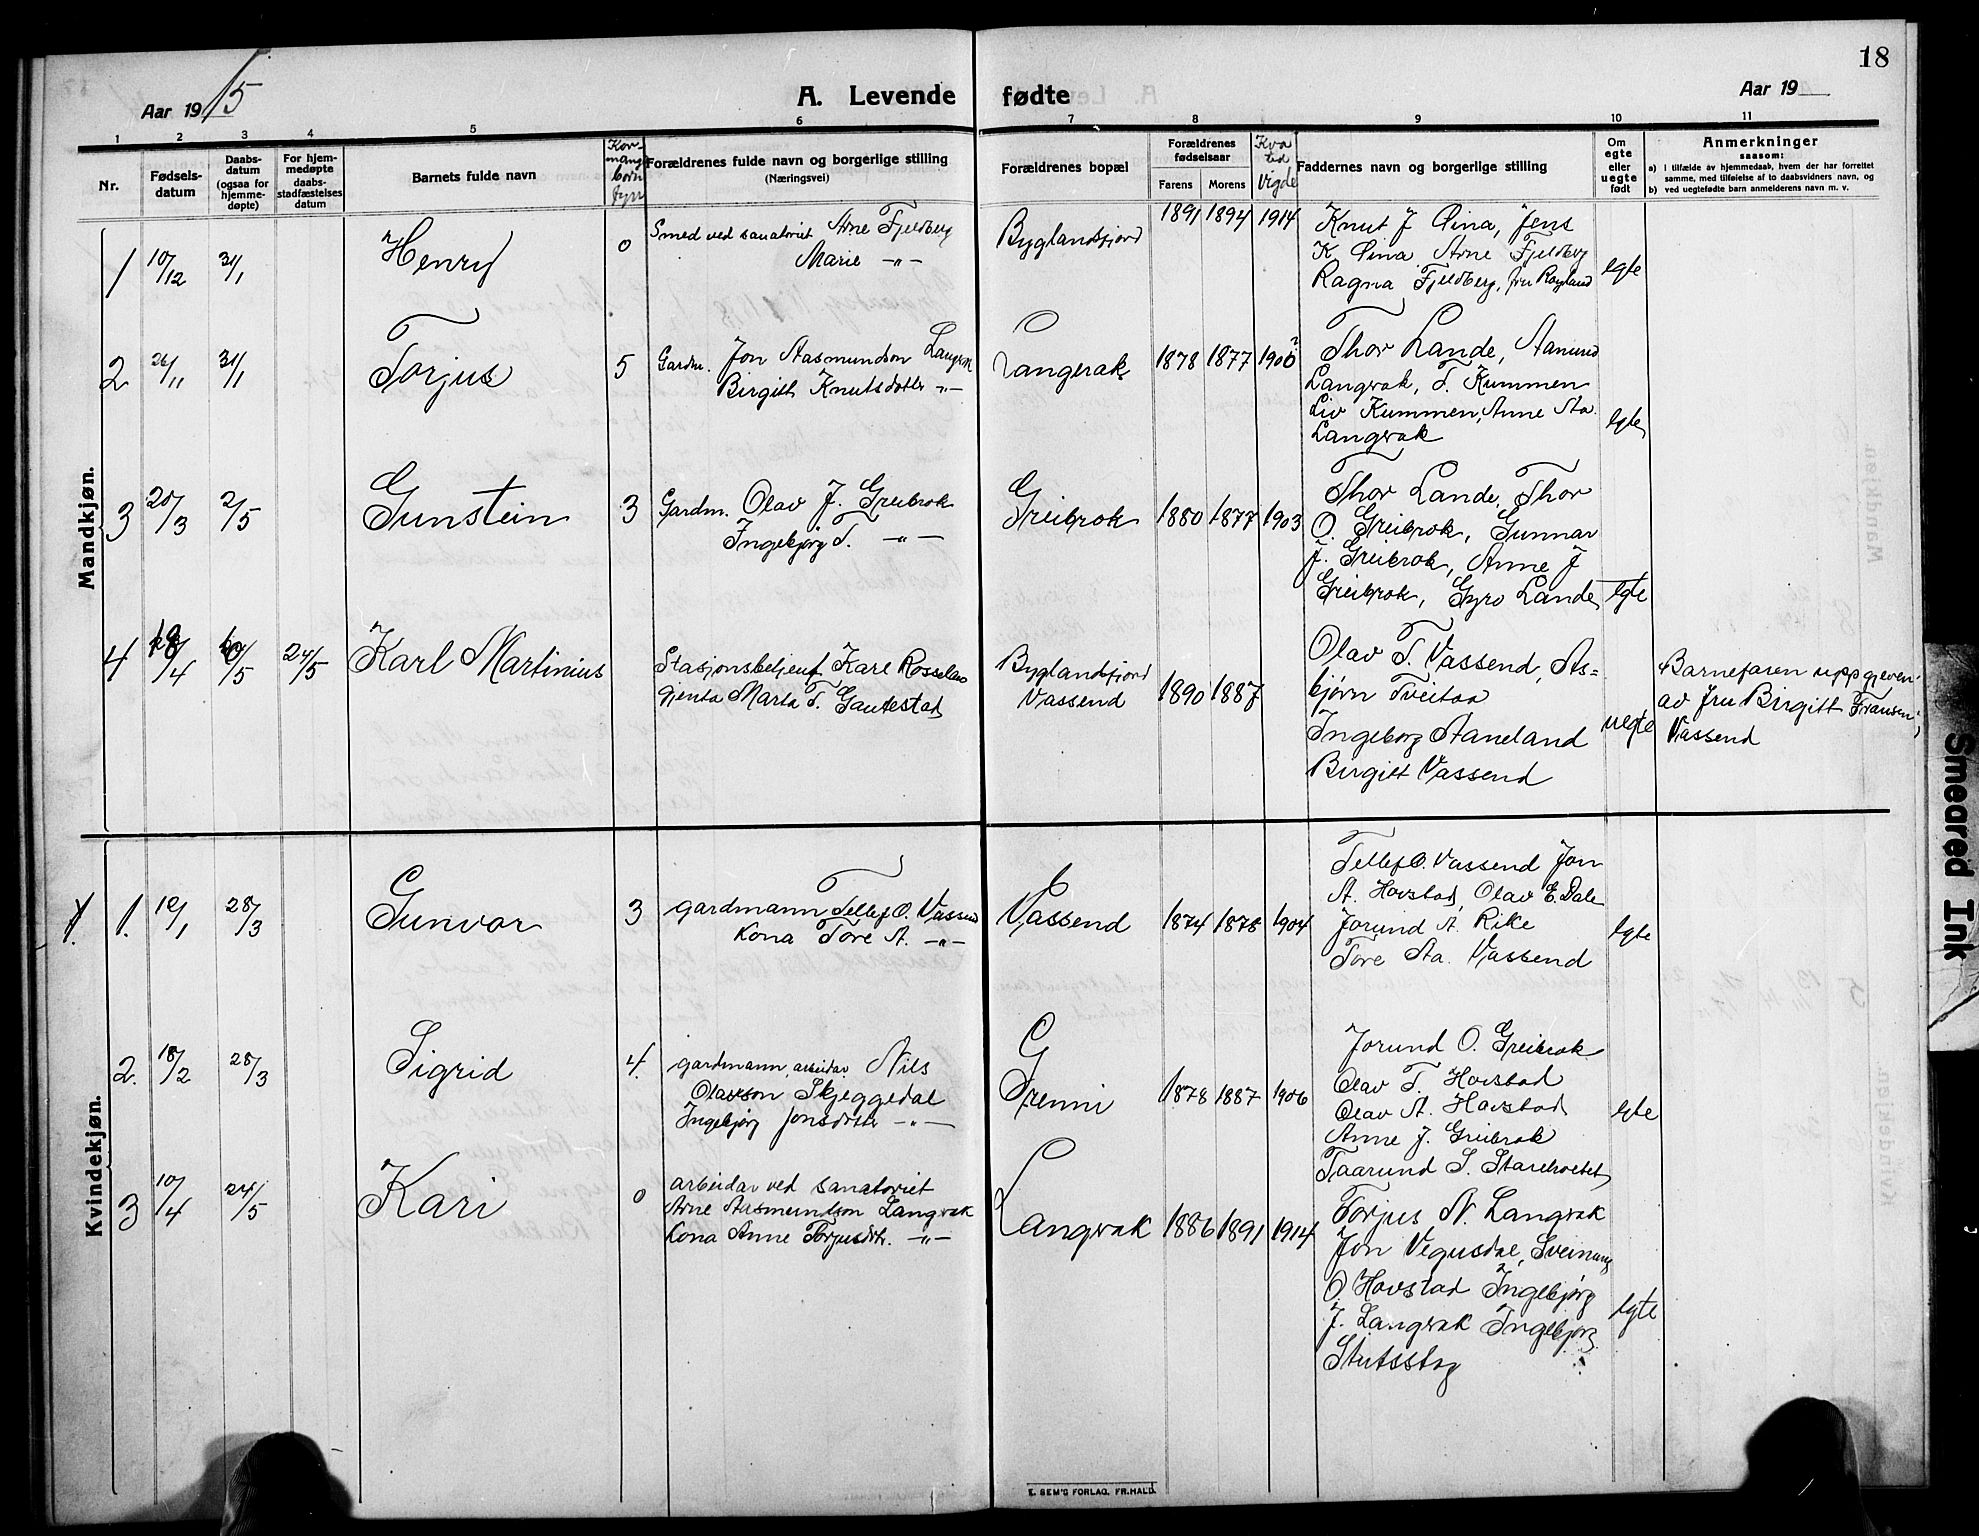 18
Aar 1915
A. Levende fødte
Aar 19
1 2 3 4 5 6 7 8 9 10 11
Nr.
Fødsels-
datum
Daabs-
datum
(ogsaa for
hjemme-
døpte)
For hjem-
medøpte
daabs-
stadfæstelses
datum
Barnets fulde navn
Kor-
mange
born
fyrr
Forældrenes fulde navn og borgerlige stilling
(Næringsvei)
Forældrenes bopæl
Forældrenes
fødselsaar
Farens Morens
Kva
tid
Vigde
Faddernes navn og borgerlige stilling
Om
egte
eller
uegte
født
Anmerkninger
saasom:
a) i tilfælde av hjemmedaab, hvem der har forrettet
samme, med tilføielse af to daabsvidners navn, og
b) ved uegtefødte barn anmelderens navn m. v.
Mandkjøn.
1 10/12 31/1 Henry 0
Smed ved sanatoriet Arne Fjeldberg
Marie -"-
Byglandsfjord 1891 1894 1914
Knut J Lina, Jens
K Lina Arne Fjeldberg
Ragna Fjeldberg, fru Røyland
egte
2 26/11 31/1 Torjus 5
Gardm. Jon Aasmundson Langerak
Birgitt Knutsdotter -"-
Langerak 1878 1877 1900?
Thor Lande, Aamund
Langerak, T. Kummen
Liv Kummen, Anne Aa.
Langerak
egte
3 20/3 2/5 Gunstein 3
Gardm. Olav J. Greibrok
Ingebjørg T. -"-
Greibrok 1880 1877 1903
Thor Lande, Thor
O. Greibrok, Gunnar
J. Greibrok, Anne J
Greibrok, Gyro Lande
egte
4 18/4 /5 24/5 Karl Martinius
Stasjonsbetjent Karl Rosseland
gjenta Marta T. Gautestad
Byglandsfjord
Vassend 1890 1887
Olav T. Vassend, As-
bjørn Tveitaa
Ingeborg Staneland
Birgitt Vassend
uegte
Barnefaren uppgjeven
av fru Birgitt Fransen,
Vassend
Kvindekjøn.
1. 1. 10/1 28/3 Gunvor 3
gardmann Tellef O. Vassend
Kona Tore A. -"-
Vassend 1874 1878 1904
Tellef O. Vassend Jon
A. Hovstad, Olav E. Dale
Jorund A. Rike
Tore Aa. Vassend
egte
2. 18/2 28/3 Sigrid 4.
gardmann, arbeidar Nils
Olavson Skjeggedal
Ingebjørg Jonsdotter -"-
Grenni 1878 1887 1906
Jorund O. Greibrok
Olav T. Hovstad
Olav A. Hovstad
Anne J. Greibrok
Taarund S.
egte
3 10/4 24/5 Kari 0
arbeidar ved sanatoriet
Arne Aasmundson Langerak
Kona Anne Torjusdtr. -"-
Langerak 1886 1891 1914
Torjus N. Langerak
Jon Vegusdal, Sveinung
O. Hovstad Ingebjørg
J. Langerak Ingebjørg
egte
E. SEM'S FORLAG, FR.HALD.
Smeared Ink